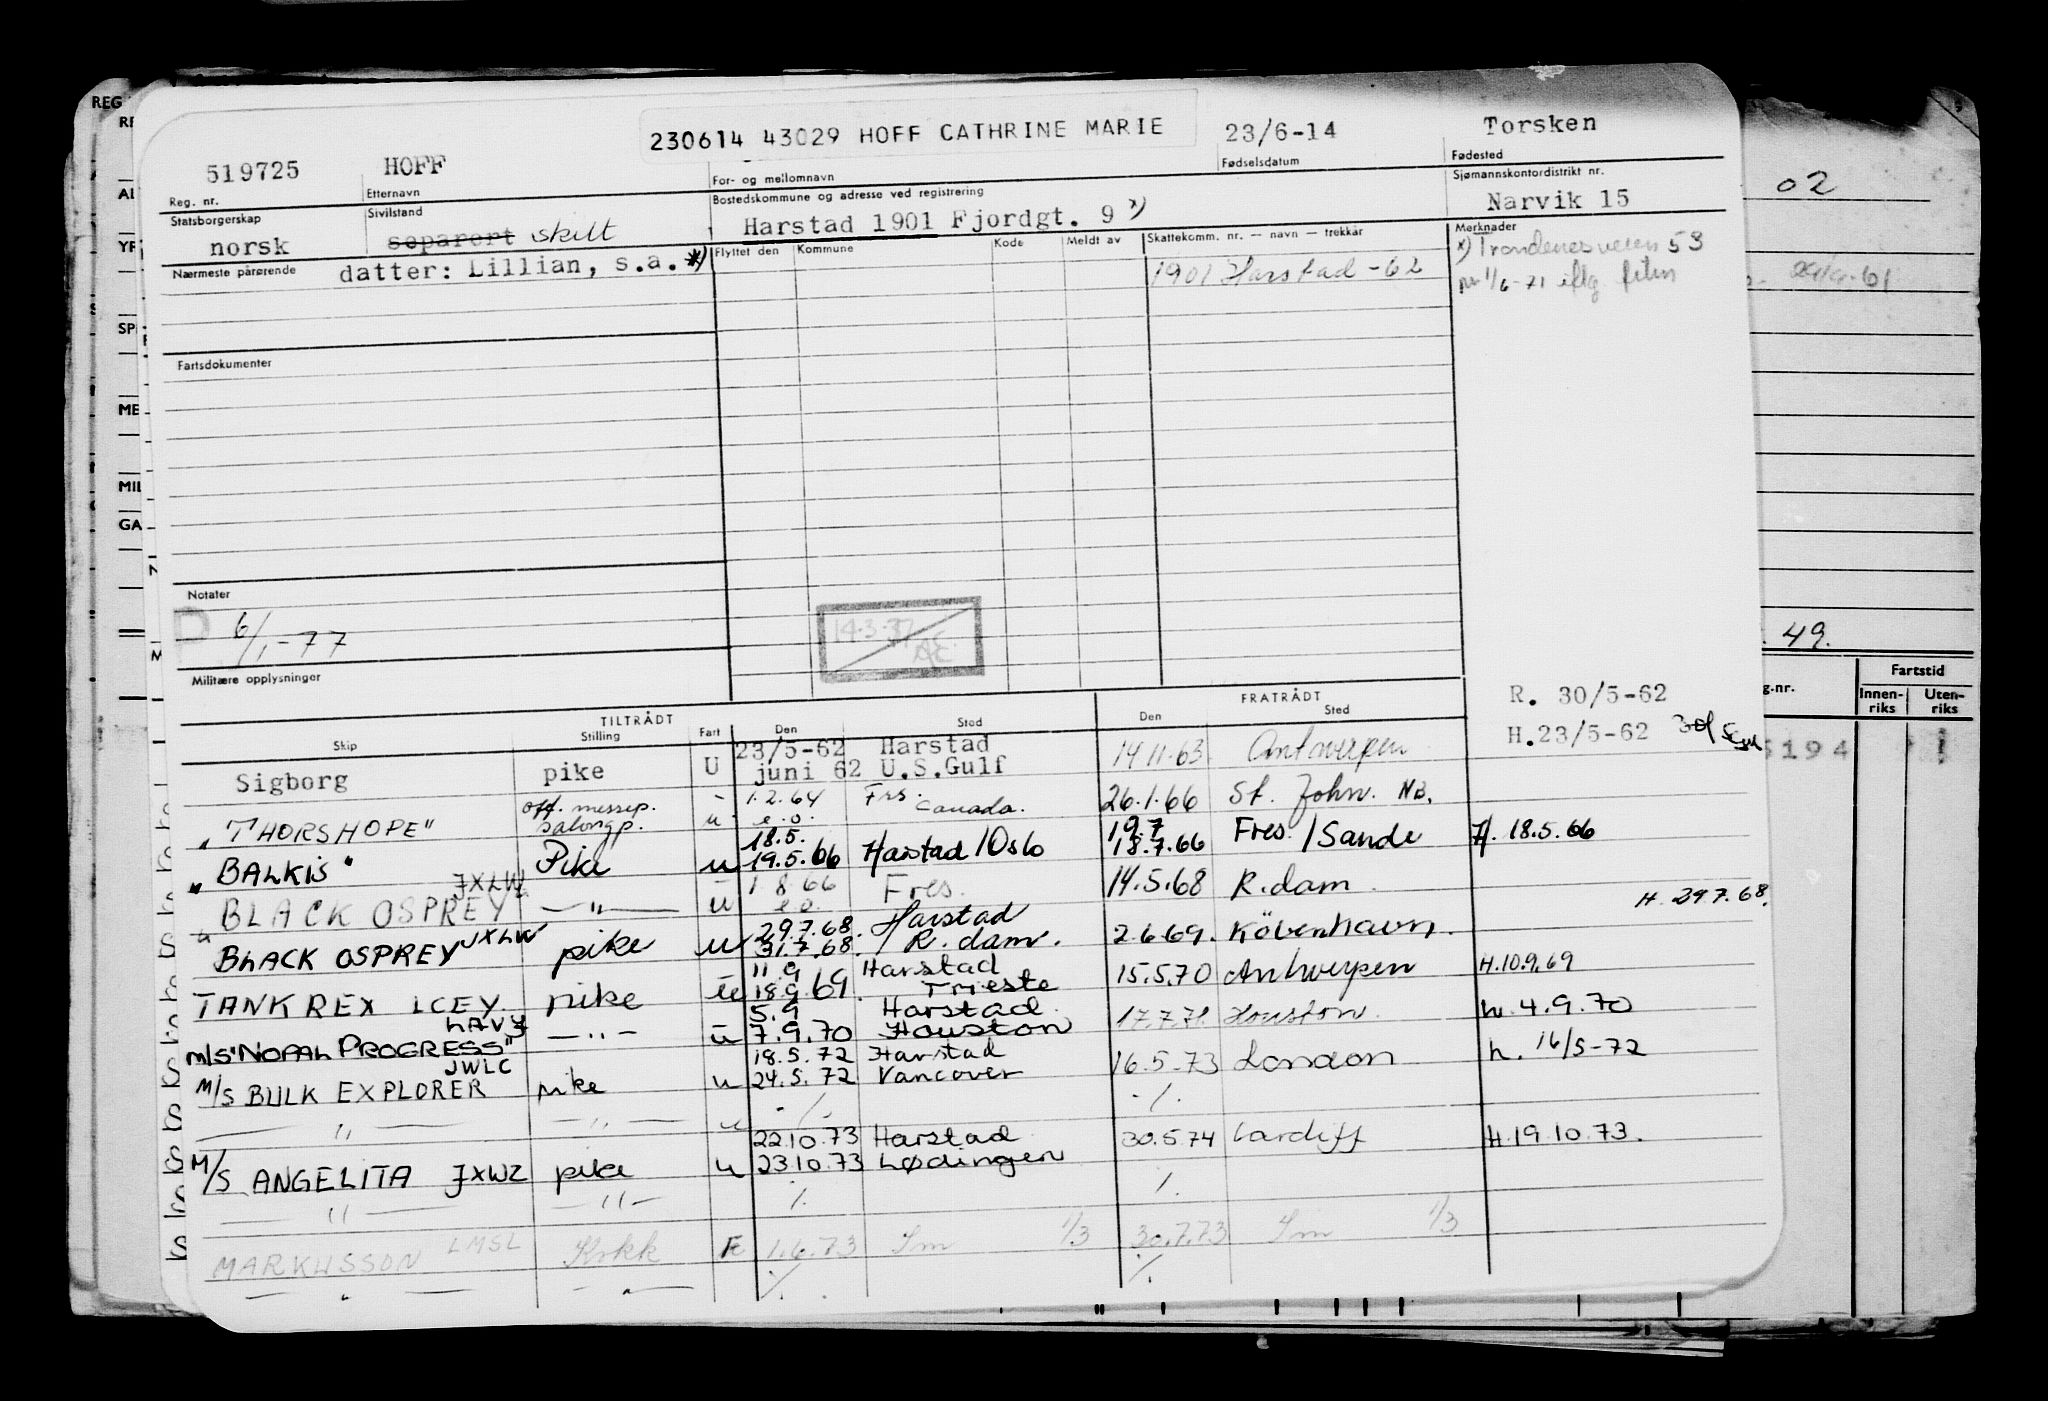 230614 43029 HOFF CATHRINE MARIE 23/6-14 Torsken
519725 HOFF
Reg. nr. Etternavn For- og mellomnavn Fødselsdatum Fødested
Statsborgerskap Sivilstand Bostedskommune og adresse ved registrering Sjømannskontordistrikt nr.
norsk separert skilt Harstad 1901 Fjordgt. 9 x) Narvik 15
Nærmeste pårørende Flyttet den Kommune Kode Meldt av Skattekomm. nr. — navn — trekkår Merknader
datter: Lillian, s.a. *) 1901 Harstad -62 x) Trondenesveien 53
pr 1/6-71 iflg.
Fartsdokumenter
Notater
6/1-77
14.3.
Militære opplysninger
R. 30/5-62
H. 23/5-62
TILTRÅDT FRATRÅDT
Skip Stilling Fart Den Sted Den Sted
23/5-62 Harstad
Sigborg pike U juni 62 U.S.Gulf 14 11.63 Antwerpen
off. messep. 1.2.64 Frs. Canada.
"THORSHOPE" salongp. u e.o. 26.1.66 St. John. NB.
18.5. 19.7
"BALKIS" Pike u 19.5.66 Harstad/Oslo 18.7.66 Fres./Sande H. 18.5.66
JXLW
BLACK OSPREY —"— u 1.8.66 e.o. Fres. 14.5.68 R.dam
29.7.68. Harstad H. 29.7.68.
BLACK OSPREY JXLW pike u 31.7.68. R.dam. 2.6.69. København.
11.9 Harstad
TANK REX LCEY pike u 18.9.69. Trieste 15.5.70 Antwerpen H.10.9.69
LAVY 5.9 Harstad
M/S "NOPAL PROGRESS" —"— u 7.9.70 Houston 17.7.71. Houston. h. 4.9.70
JWLC 18.5.72 Harstad
M/S BULK EXPLORER pike u 24.5.72 Vancover 16.5.73 London h. 16/5-72
—"— —"— u -/- -/.
22.10.73 Harstad
M/S ANGELITA JXWZ pike u 23.10.73 Lødingen 30.5.74 Cardiff H.19.10.73.
—"— —"— /. /.
MARKUSSON LMSL Kokk F 1.6.73 Sm 1/3 30.7.73 Sm 1/3
—"— —"— /. /.
REG
AL
YR
SP
ME
MIL
GA
02
49.
g.nr.
Fartstid
Innen-riks Uten-riks
5194